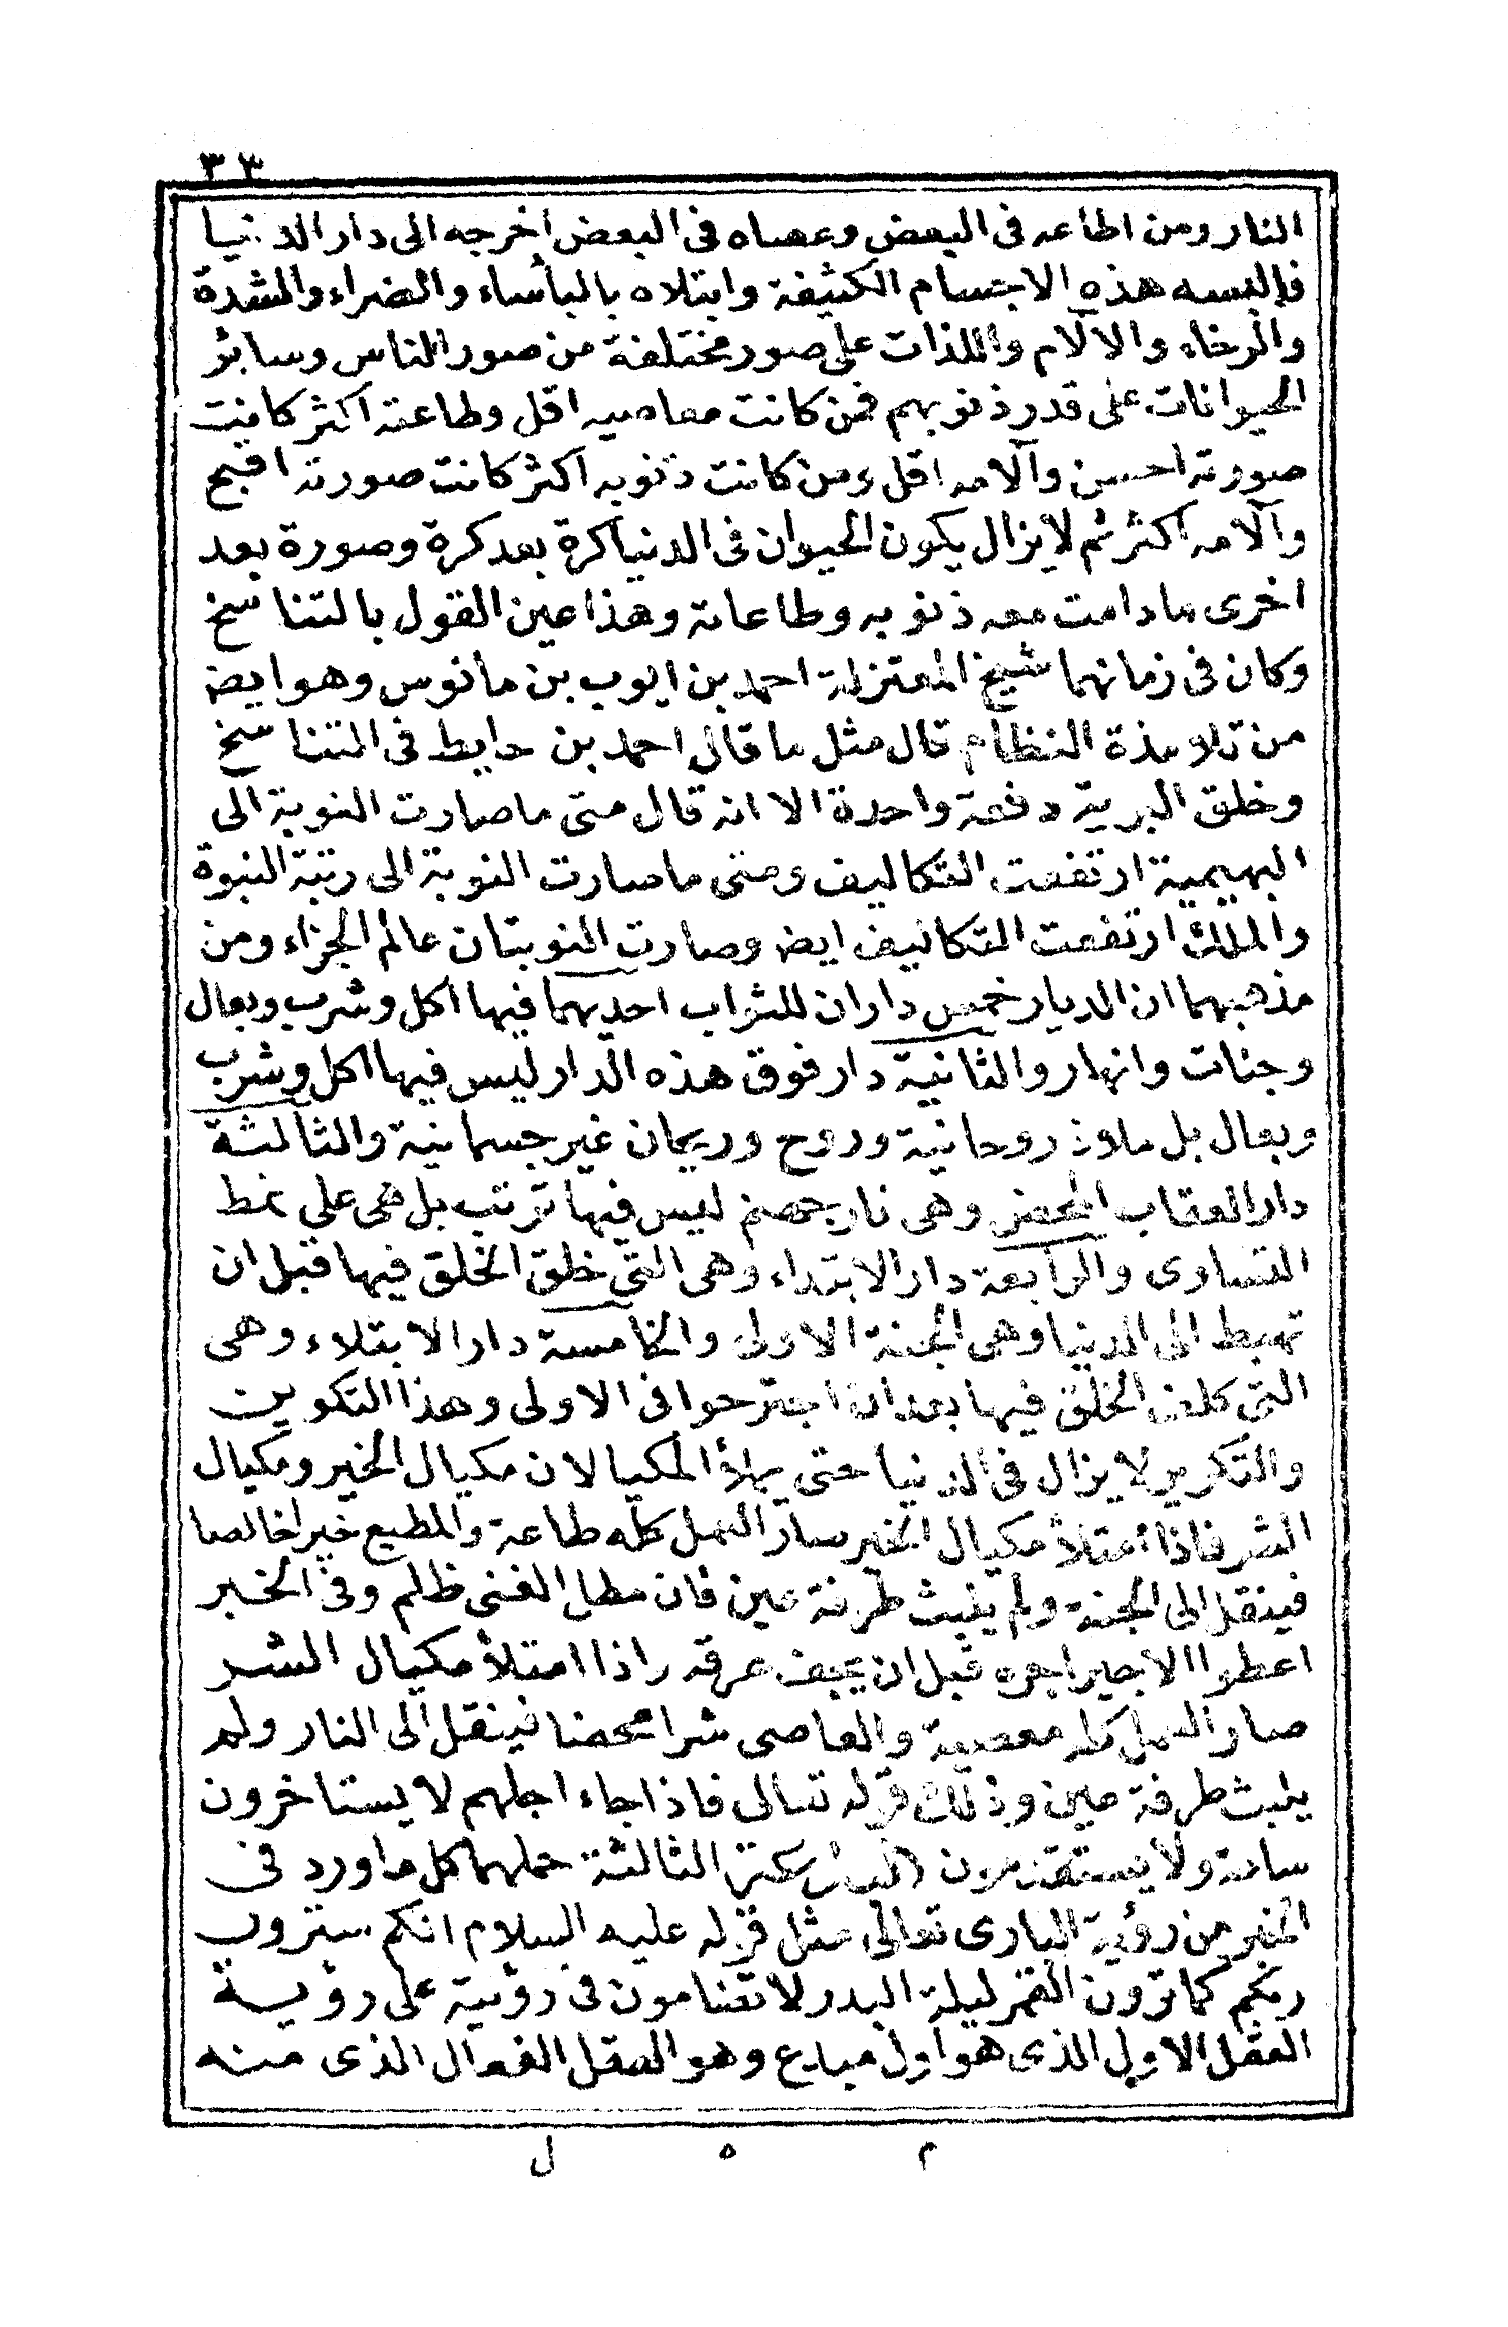 ٣٣
النار ومن اطاعه فى البعض وعصاه فى البعض اخرجه الى دار الدنيا
فالبسه هذه الاجسام الكثيفة وابتلاه بالبأساء والضراء والشدة
والرخاء والالآم واللذات على صور مختلفة من صور الناس وسائر
الحيوانات على قدر ذنوبهم فمن كانت معاصيه اقل وطاعته اكثر كانت
صورته احسن وآلامه اقل ومن كانت ذنوبه اكثر كانت صورته اقبح
وآلامه اكثر ثم لا يزال يكون الحيوان فى الدنيا كرة بعد كرة وصورة بعد
اخرى ما دامت معه ذنوبه وطاعاته وهذا عين القول بالتناسخ
وكان فى زمانهما شيخ المعتزلة احمد بن ايوب بن مانوس وهو ايضا
من تلامذة النظام قال مثل ما قال احمد بن حايط فى التناسخ
وخلق البرية دفعة واحدة الا انه قال متى ما صارت النوبة الى
البهيمية ارتفعت التكاليف ومتى ما صارت النوبة الى رتبة النبوة
والملك ارتفعت التكاليف ايضا وصارت النوبتان عالم الجزاء ومن
مذهبهما ان الديار خمس داران للثواب احديهما فيها اكل وشرب وبعال
وجنات وانهار والثانية دار فوق هذه الدار ليس فيها اكل وشرب
وبعال بل ملاذ روحانية وروح وريحان غير جسمانية والثالثة
دار العقاب المحض وهى نار جهنم ليس فيها ترتيب بل هى على نمط
التساوى والرابعة دار الابتداء وهى التى خلق الخلق فيها قبل ان
تهبط الى الدنيا وهى الجنة الاولى والخامسة دار الابتلاء وهى
التى كلف الخلق فيها بعد ان اجترحوا فى الاولى وهذا التكوين
والتكرير لا يزال فى الدنيا حتى يملأ المكيالان مكيال الخير ومكيال
الشر فاذا امتلأ مكيال الخير صار العمل كله طاعة والمطيع خيرا خالصا
فينقل الى الجنة ولم يلبث طرفة عين فان مطل الغنى ظلم وفى الخبر
اعطوا الاجير اجره قبل ان يجف عرقه واذا امتلأ مكيال الشر
صار العمل كله معصية والعاصى شرا محضا فينقل الى النار ولم
يلبث طرفة عين وذلك قوله تعالى فاذا جاء اجلهم لا يستاخرون
ساعة ولا يستقدمون الثالثة حملهما كل ما ورد فى
الخبر من رؤية البارى تعالى مثل قوله عليه السلام انكم سترون
ربكم كما ترون القمر ليلة البدر لا تضامون فى رؤيته على رؤية
العقل الاول الذى هو اول مبدع وهو العقل الفعال الذى منه
م ٥ ل